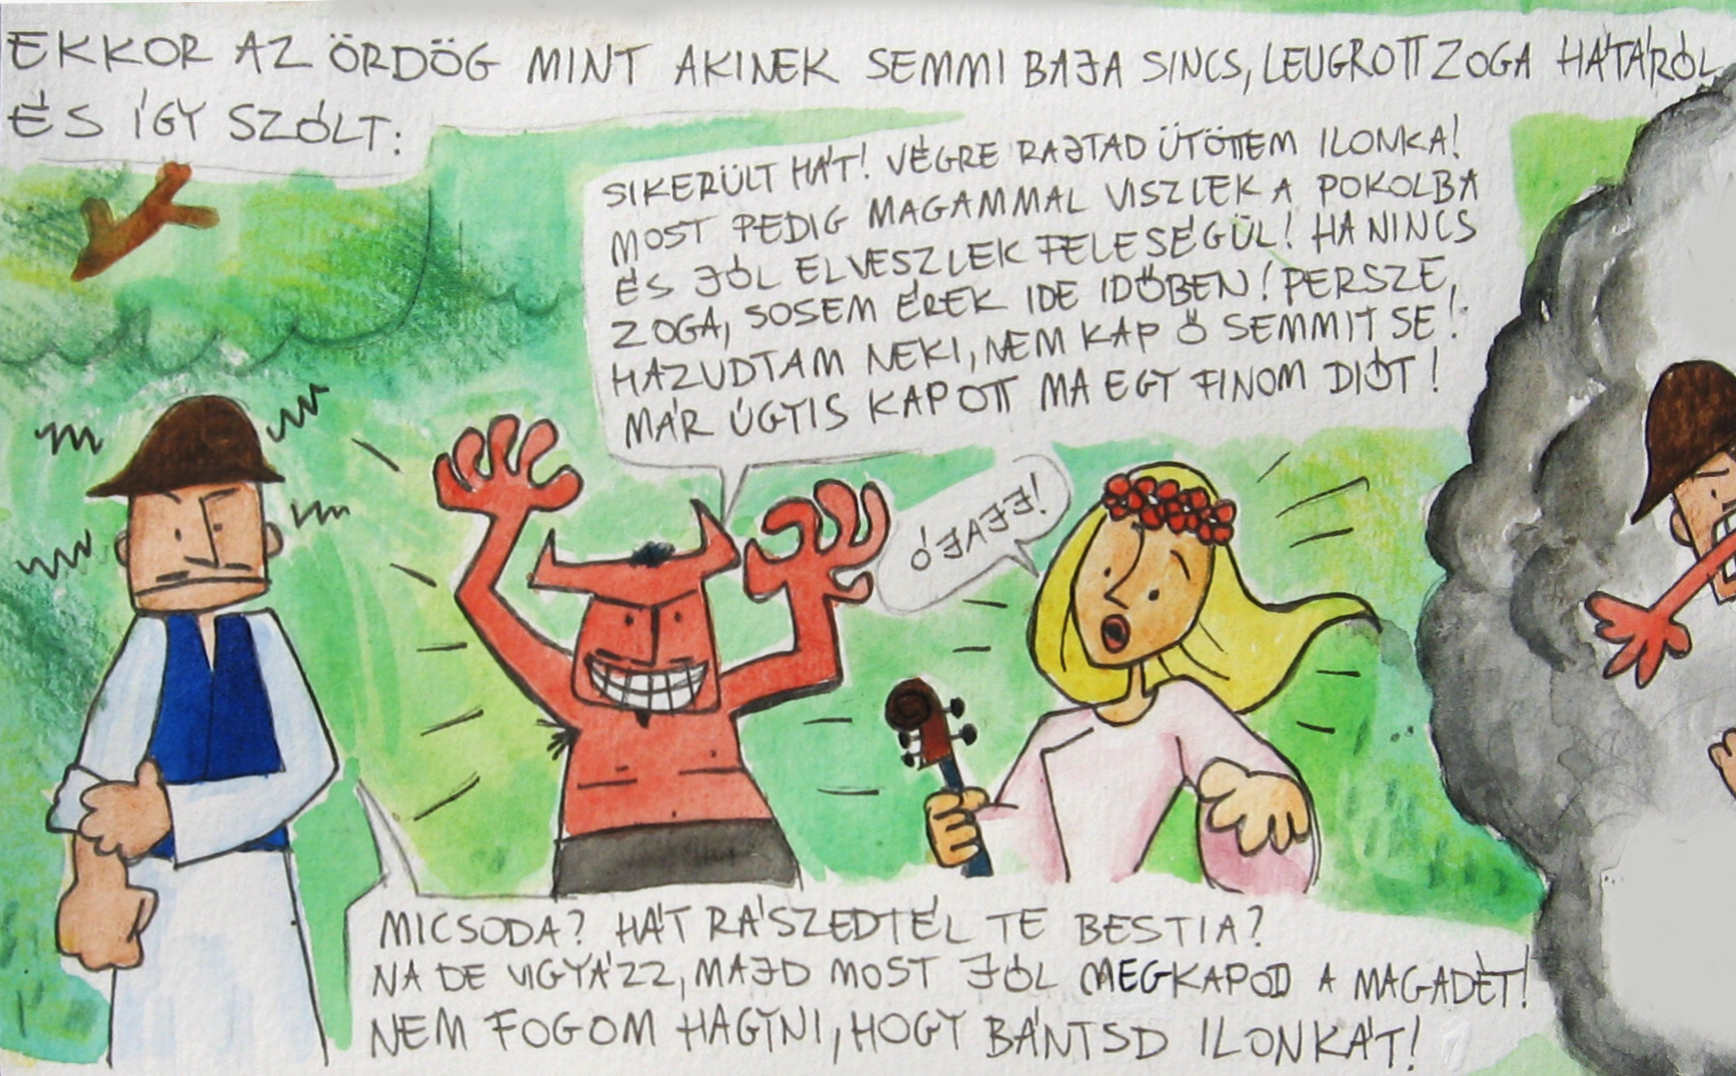 EKKOR AZ ÖRDÖG MINT AKINEK SEMMI BAJA SINCS, LEUGROTT ZOGA HÁTÁRÓL
ÉS ÍGY SZÓLT:
SIKERÜLT HÁT! VÉGRE RAJTAD ÜTÖTTEM ILONKA!
MOST PEDIG MAGAMMAL VISZLEK A POKOLBA
ÉS JÓL ELVESZLEK FELESÉGÜL! HA NINCS
ZOGA, SOSEM ÉREK IDE IDŐBEN! PERSZE,
HAZUDTAM NEKI, NEM KAP Ő SEMMIT SE!
MÁR ÚGYIS KAPOTT MA EGY FINOM DIÓT!
ÓJAJJ!
MICSODA? HÁT RÁSZEDTÉL TE BESTIA?
NA DE VIGYÁZZ, MAJD MOST JÓL MEGKAPOD A MAGADÉT!
NEM FOGOM HAGYNI, HOGY BÁNTSD ILONKÁT!